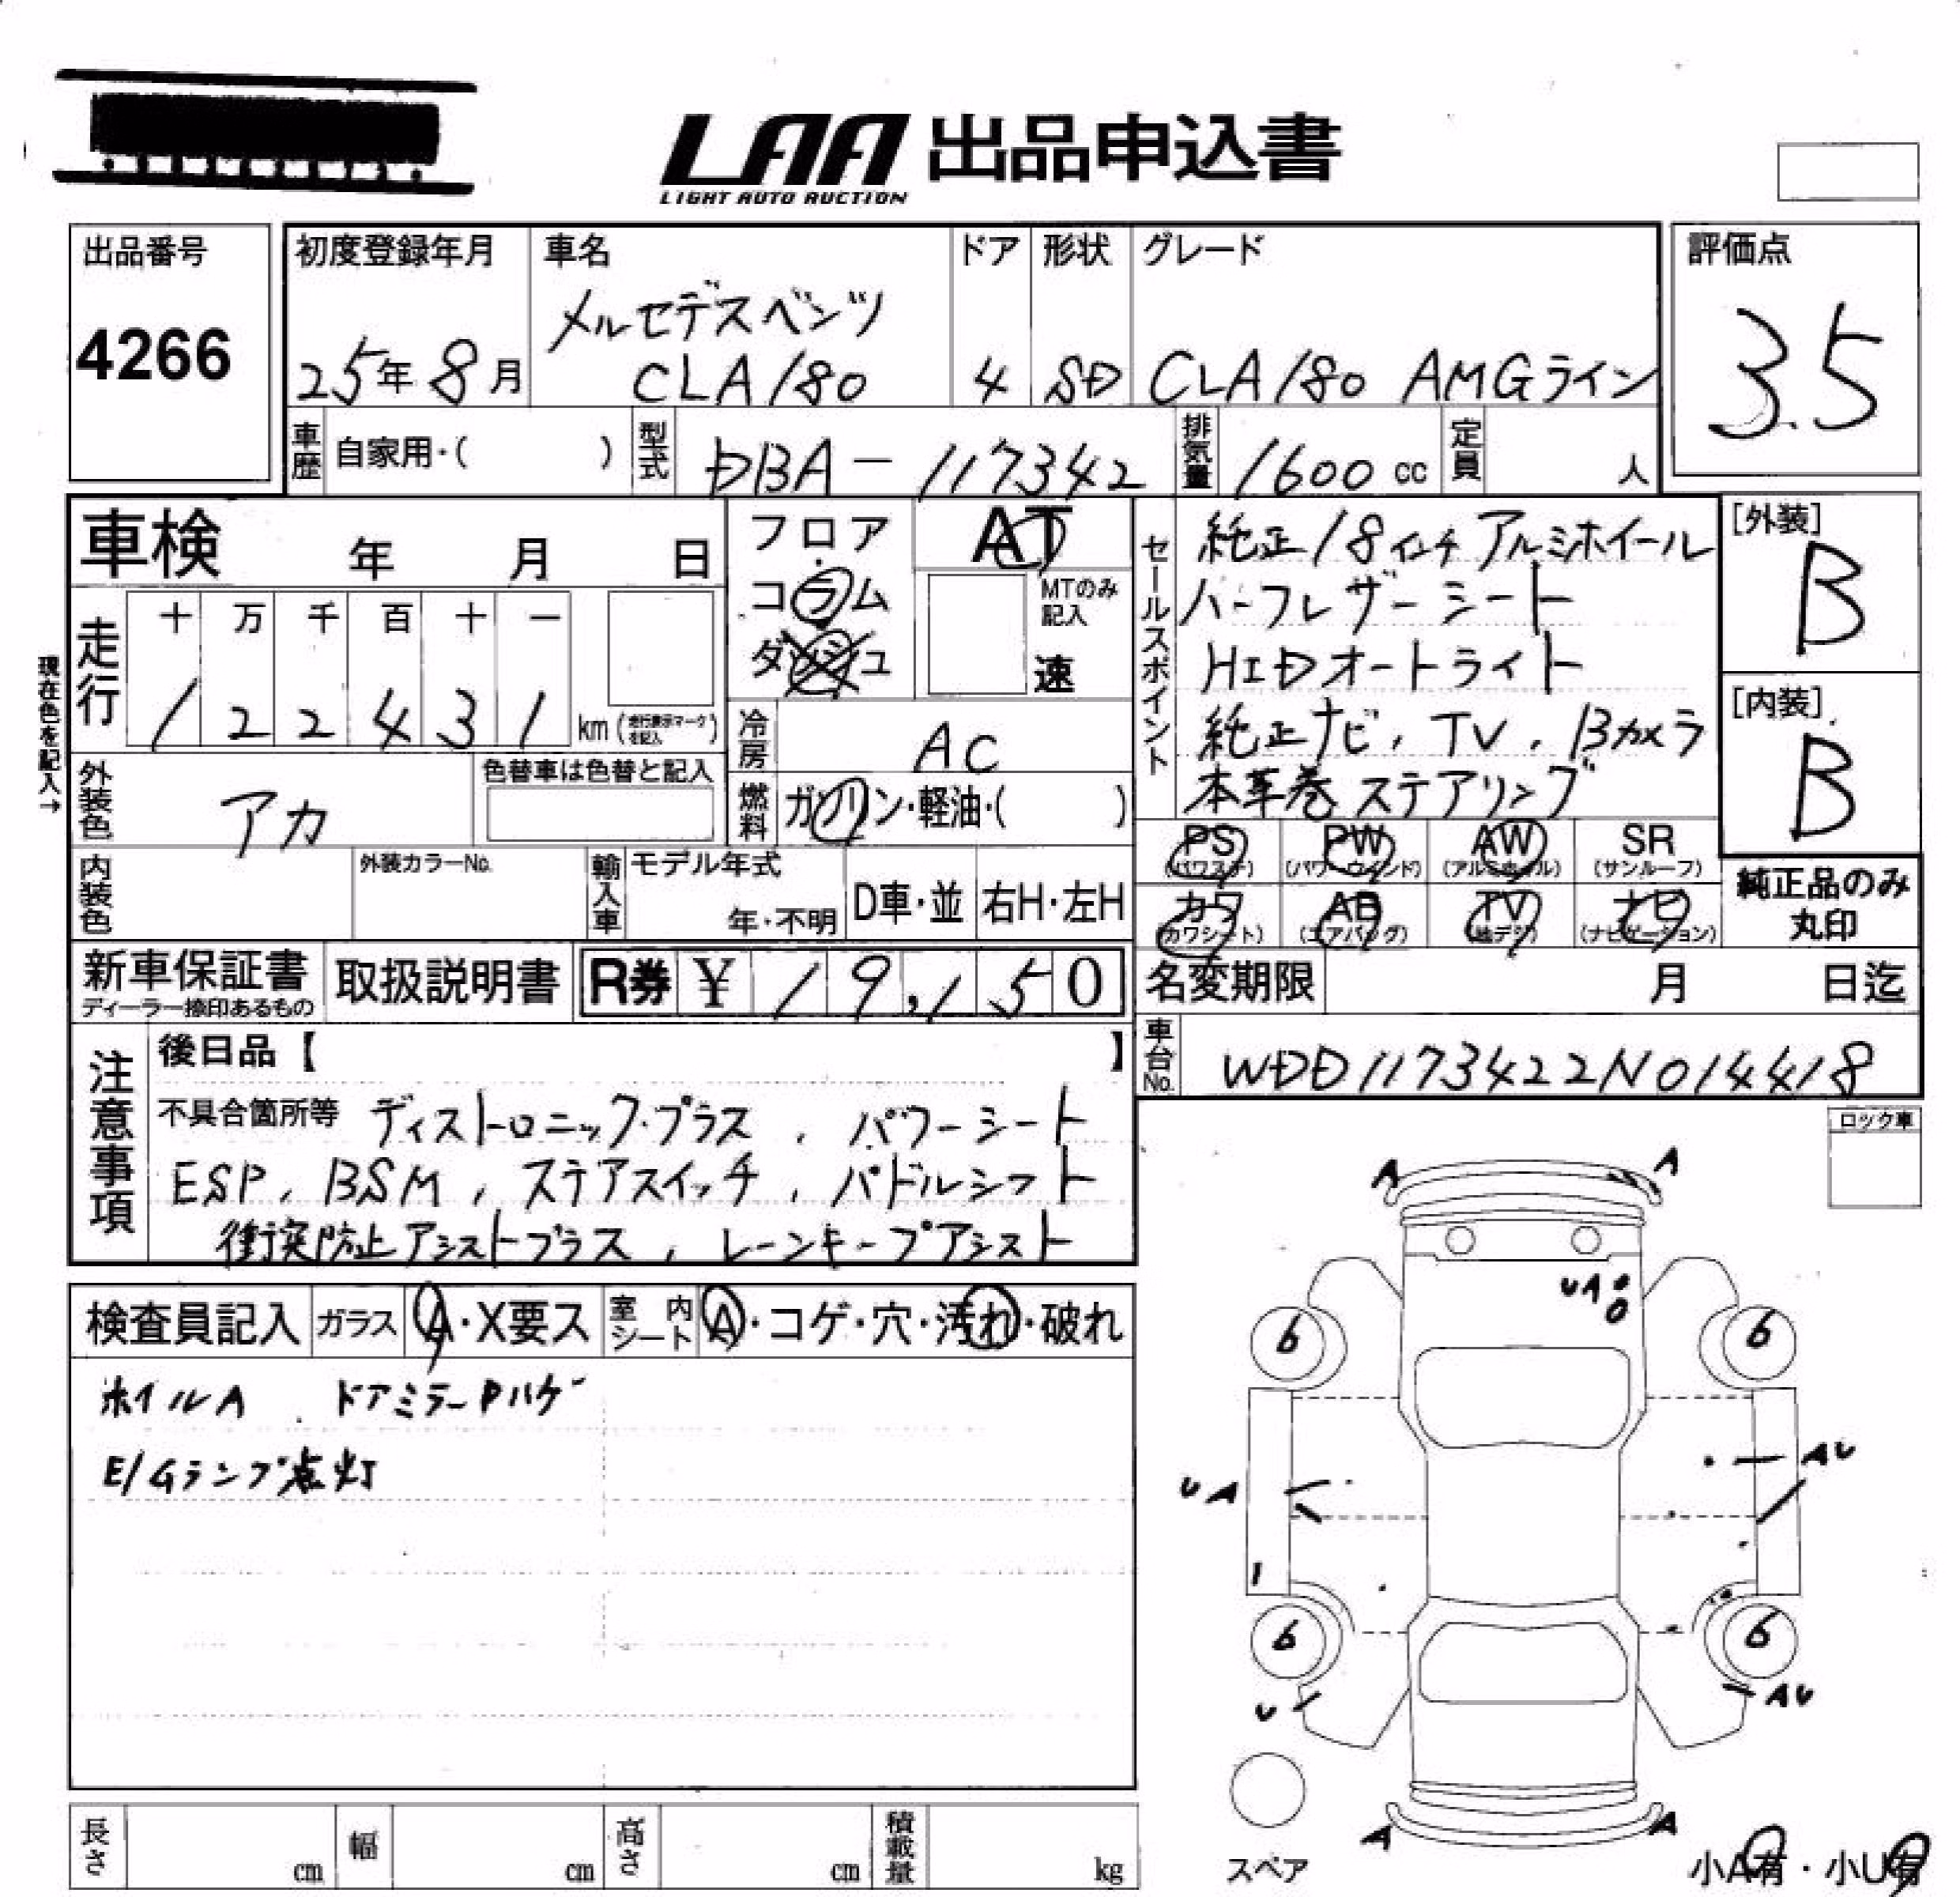 LAA 出品申込書
LIGHT AUTO AUCTION
出品番号
4266
初度登録年月
25年8月
車名
メルセデスベンツ
CLA180
ドア
4
形状
SD
グレード
CLA180 AMGライン
評価点
3.5
車歴
自家用・( )
型式
DBA-117342
排気量
1600 cc
定員
人
車検 年 月 日
フロア
・
コラム
・
ダッシュ
AT
MTのみ
記入
速
セールスポイント
純正18インチアルミホイール
ハーフレザーシート
HIDオートライト
純正ナビ, TV, Bカメラ
本革巻ステアリング
[外装]
B
[内装]
B
現在色を記入→
走行
十 万 千 百 十 一
1 2 2 4 3 1 km (走行表示マークを記入)
冷房
AC
外装色
アカ
色替車は色替と記入
燃料
ガソリン・軽油・( )
PS
(パワステ)
PW
(パワーウインド)
AW
(アルミホイル)
SR
(サンルーフ)
内装色
外装カラーNo.
輸入車
モデル年式
年・不明
D車・並
右H・左H
カワ
(カワシート)
AB
(エアバッグ)
TV
(地デジ)
ナビ
(ナビゲーション)
純正品のみ
丸印
新車保証書
ディーラー捺印あるもの
取扱説明書
R券 ¥ 19,150
名変期限 月 日迄
車台No.
WDD1173422N014418
注意事項
後日品【 】
不具合箇所等 ディストロニック・プラス, パワーシート
ESP, BSM, ステアスイッチ, パドルシフト
衝突防止アシストプラス, レーンキープアシスト
ロック車
検査員記入
ガラス
A・X要ス
室内シート
A・コゲ・穴・汚れ・破れ
ホイルA ドアミラーPハゲ
E/Gランプ点灯
A A
UA
6 6
UA AU
6 6
U AU
A A
スペア
小A有・小U有
長さ cm
幅 cm
高さ cm
積載量 kg